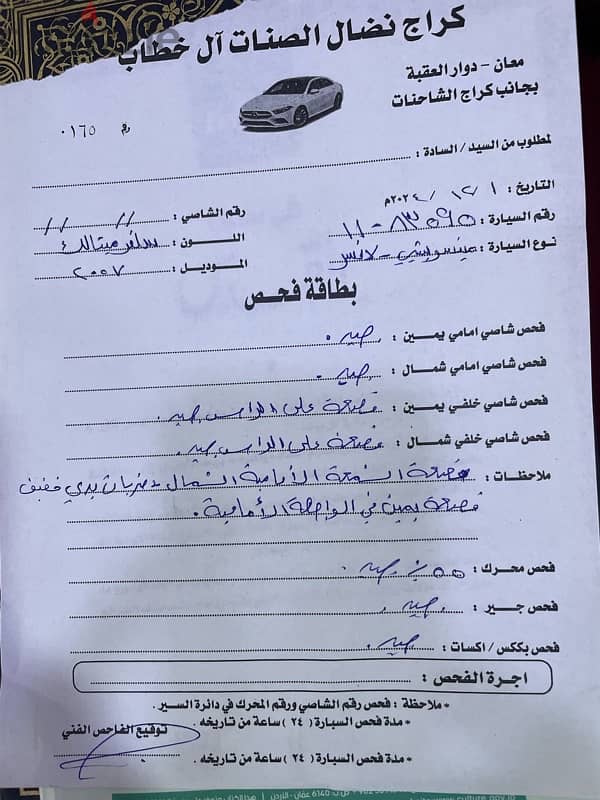 كراج نضال الصنات آل خطاب
معان - دوار العقبة
بجانب كراج الشاحنات
رقم ٠١٦٥
المطلوب من السيد / السادة :
التاريخ : ١ / ١٢ / ٢٠٢٤م
رقم السيارة : ٨٣٥٩٥ - ١١
رقم الشاصي : // //
نوع السيارة : ميتسوبيشي - لانسر
اللون : سلفر ميتالك
الموديل : ٢٠٠٧
بطاقة فحص
فحص شاصي امامي يمين : جيد .
فحص شاصي امامي شمال : جيد .
فحص شاصي خلفي يمين : قصعة على الراس جيد .
فحص شاصي خلفي شمال : قصعة على الراس جيد .
ملاحظات : قصعة الشمعة الأمامية الشمال + ضربات بدي خفيف
قصعة يمين في الواجهة الأمامية .
فحص محرك : جيد .
فحص جير : جيد .
فحص بككس / اكسات : جيد .
اجرة الفحص :
* ملاحظة : فحص رقم الشاصي ورقم المحرك في دائرة السير .
* مدة فحص السيارة ( ٢٤ ) ساعة من تاريخه .
توقيع الفاحص الفني
* مدة فحص السيارة ( ٢٤ ) ساعة من تاريخه .